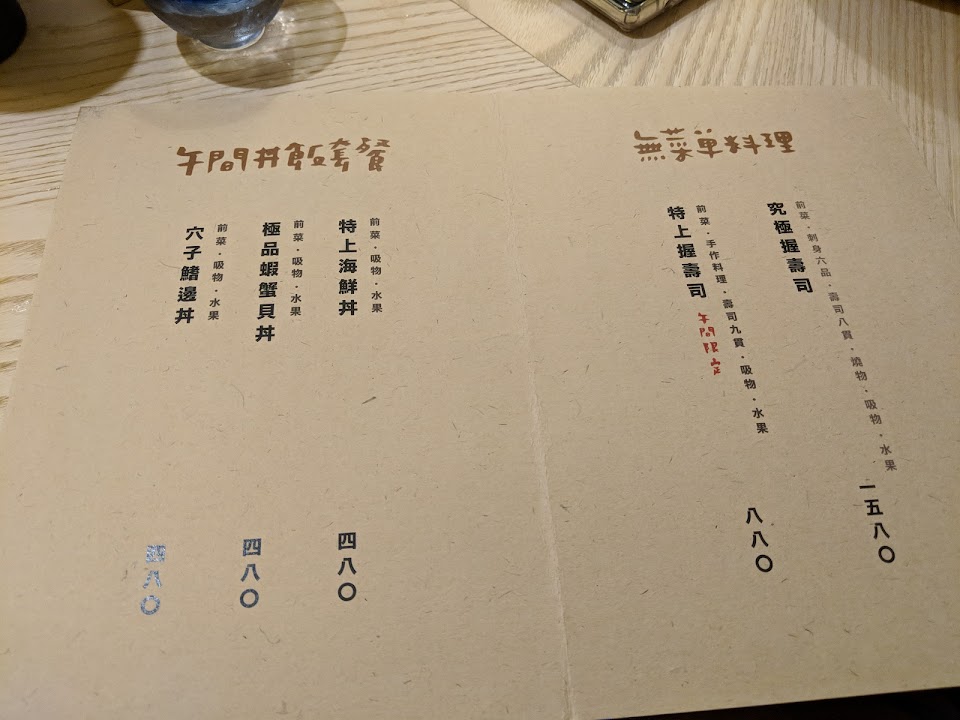 無菜單料理
前菜．刺身六品．壽司八貫．燒物．吸物．水果
究極握壽司
一五八〇
前菜．手作料理．壽司九貫．吸物．水果
特上握壽司 午間限定
八八〇
午間丼飯套餐
前菜．吸物．水果
特上海鮮丼
四八〇
前菜．吸物．水果
極品蝦蟹貝丼
四八〇
前菜．吸物．水果
穴子鰭邊丼
四八〇